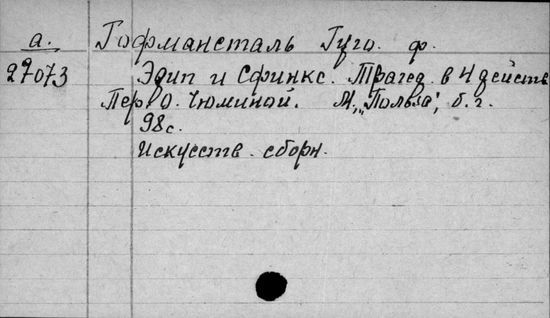 а. Гофмансталь Гуго. ф.
27073 Эдип и Сфинкс. Трагед. в 4 действ
Пер О. Чюминой. М., "Польза", б. г.
98 с.
Искусств. сборн.